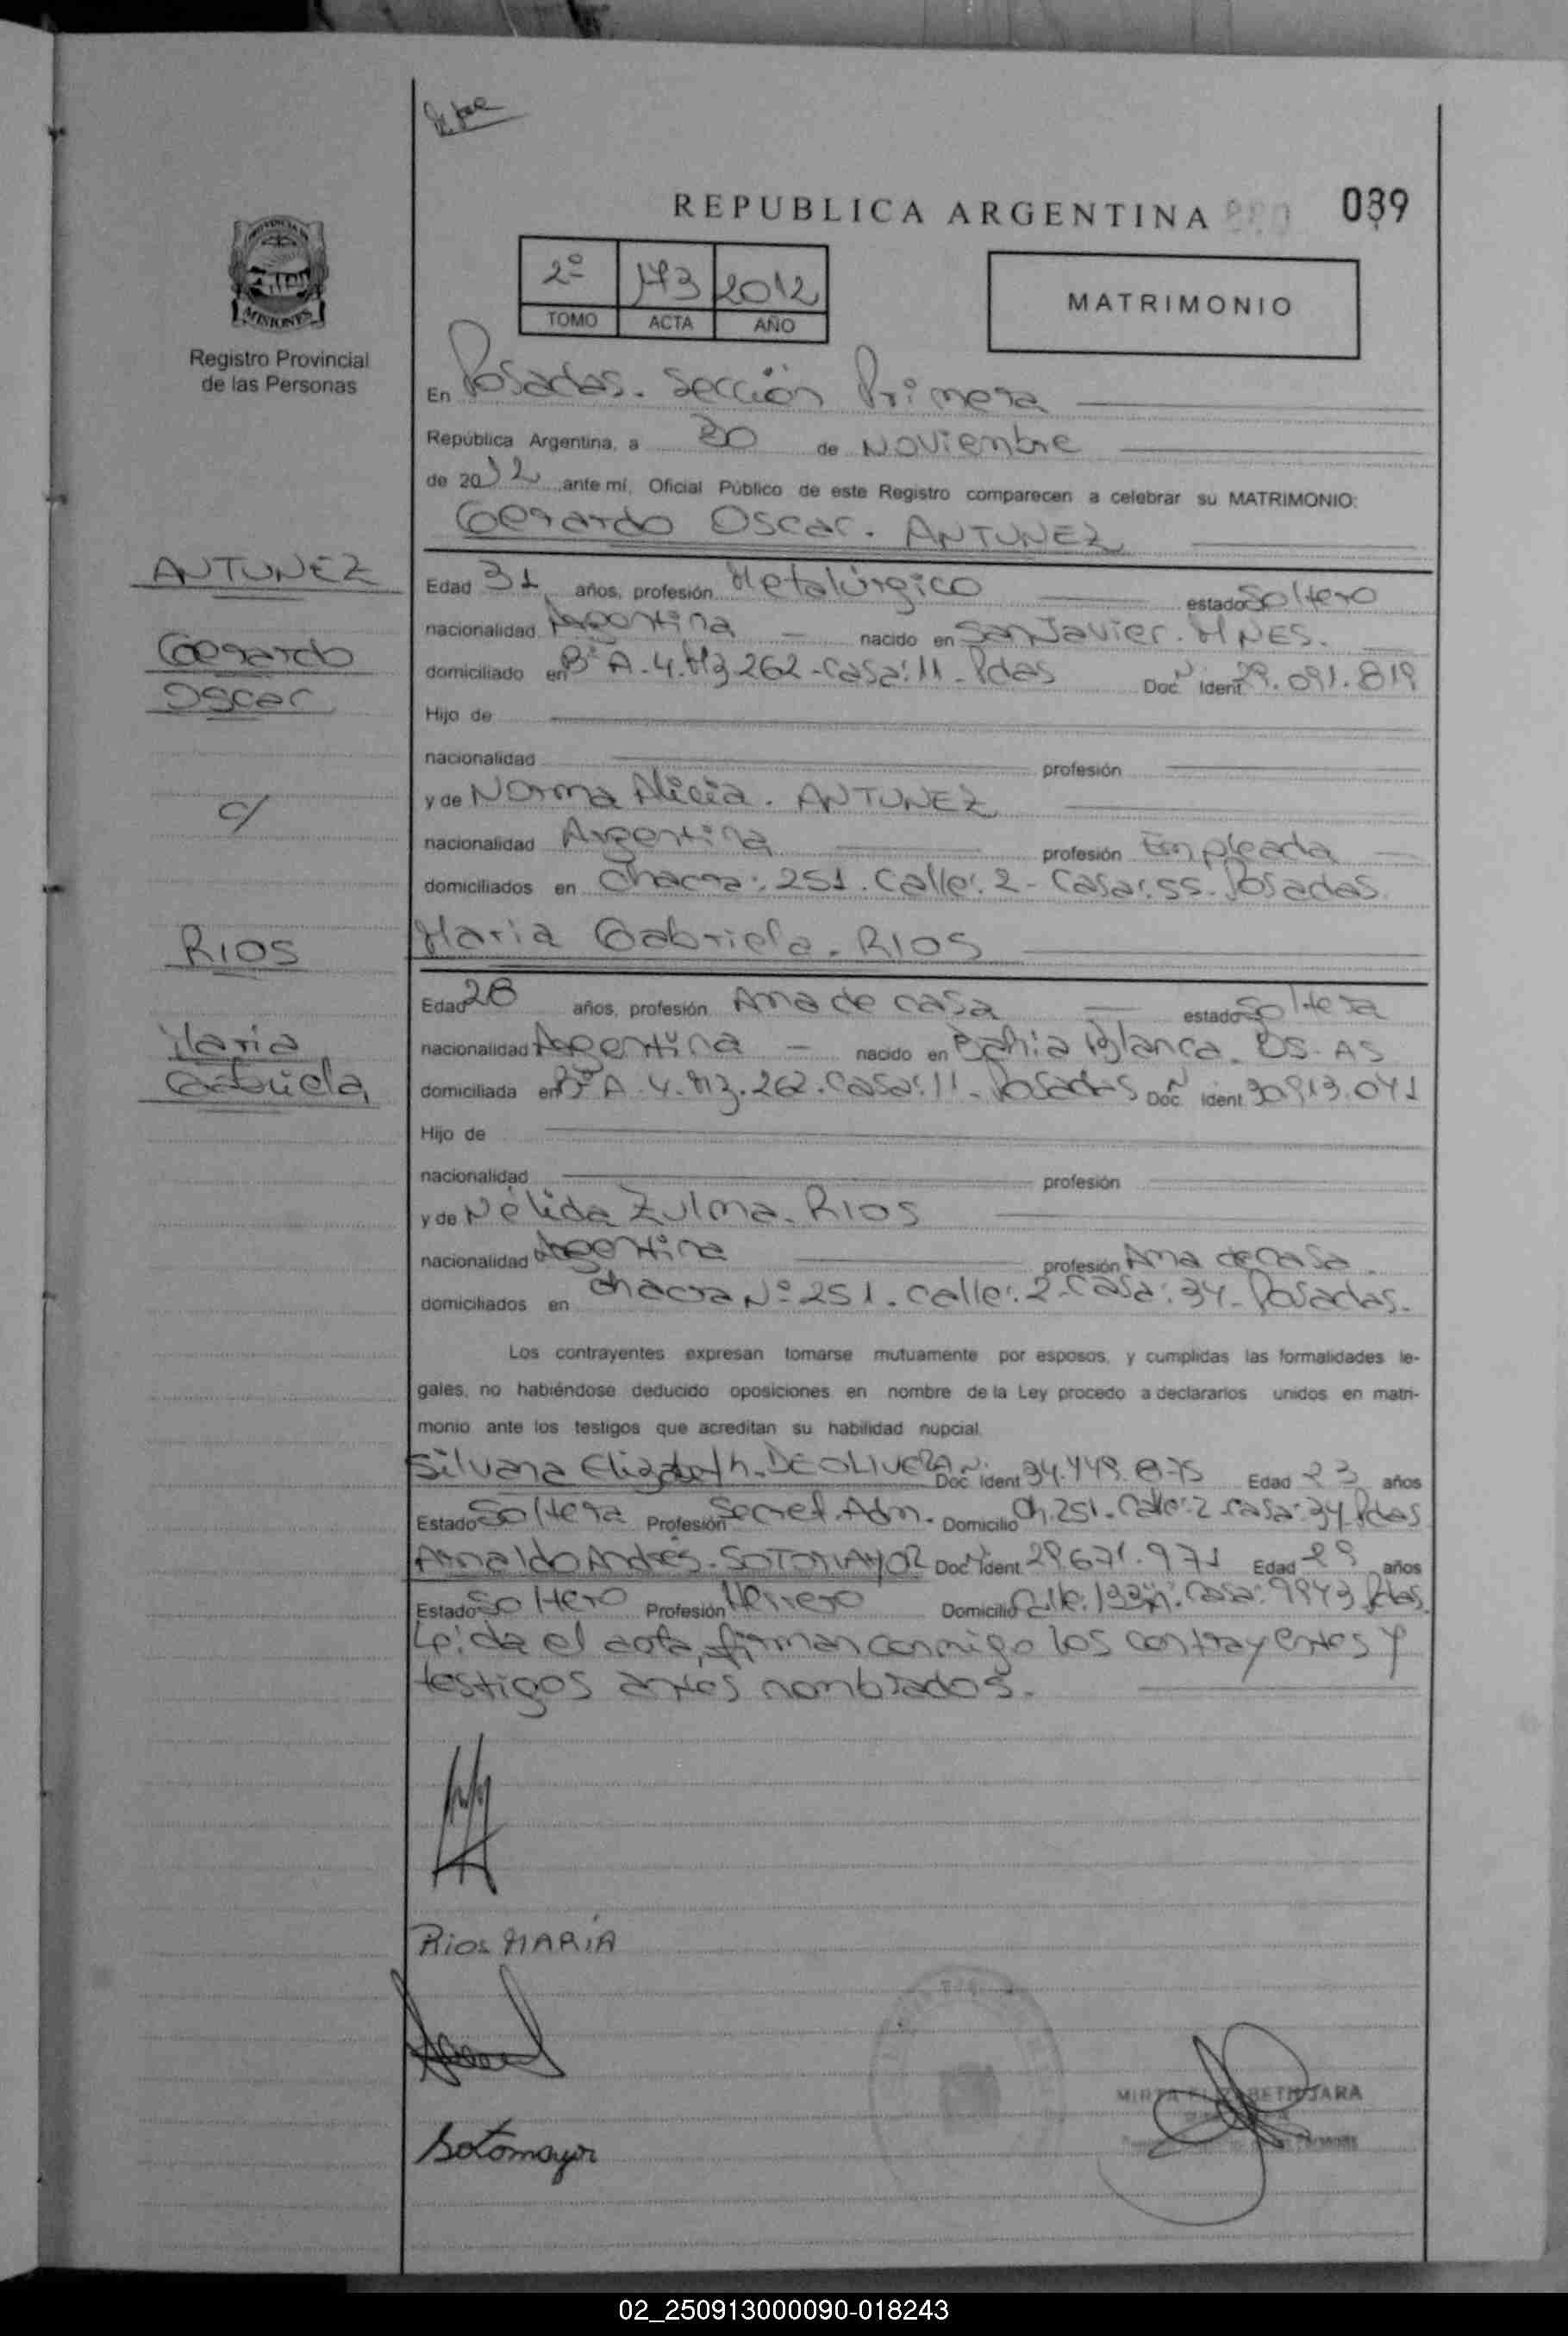 REPUBLICA ARGENTINA 039
2º 173 2012
TOMO ACTA AÑO
MATRIMONIO
MISIONES
Registro Provincial
de las Personas
En Posadas. Sección Primera
República Argentina, a 30 de Noviembre
de 2012 ante mí, Oficial Público de este Registro comparecen a celebrar su MATRIMONIO:
Gerardo Oscar. ANTUNEZ
ANTUNEZ
Gerardo
Oscar
c/
RIOS
Maria
Gabriela
Edad 31 años, profesión Metalúrgico estado Soltero
nacionalidad Argentina - nacido en San Javier. MNES.
domiciliado en Bº A-4. Mz 262-Casa: 11- Pdas Doc. Nº Ident 29.091.819
Hijo de
nacionalidad profesión
y de Norma Alicia. ANTUNEZ
nacionalidad Argentina profesión Empleada
domiciliados en Chacra: 251. Calle: 2- Casa: 55- Posadas.
Maria Gabriela. RIOS
Edad 28 años, profesión Ama de casa estado Soltera
nacionalidad Argentina - nacido en Bahia Blanca. BS-AS
domiciliada en Bº A-4. Mz. 262. Casa: 11- Posadas Doc. Nº Ident 30.913.041
Hijo de
nacionalidad profesión
y de Nélida Zulma. RIOS
nacionalidad Argentina profesión Ama de Casa.
domiciliados en Chacra Nº 251. Calle: 2- Casa: 34- Posadas.
Los contrayentes expresan tomarse mutuamente por esposos, y cumplidas las formalidades le-
gales, no habiéndose deducido oposiciones en nombre de la Ley procedo a declararlos unidos en matri-
monio ante los testigos que acreditan su habilidad nupcial.
Silvana Elizabeth. DE OLIVERA Doc. Nº Ident 34.449.875 Edad 23 años
Estado Soltera Profesión Secret. Adm. Domicilio Ch. 251- Calle: 2 casa: 34 Pdas
Arnaldo Andrés. SOTOMAYOR Doc. Nº Ident 29.671.971 Edad 29 años
Estado Soltero Profesión Herrero Domicilio Calle: Casa: 9943 Pdas.
Leída el acta, firman conmigo los contrayentes y
testigos antes nombrados.
Rios MARIA
Sotomayor
MIRTA ELIZABETH JARA
02_250913000090-018243